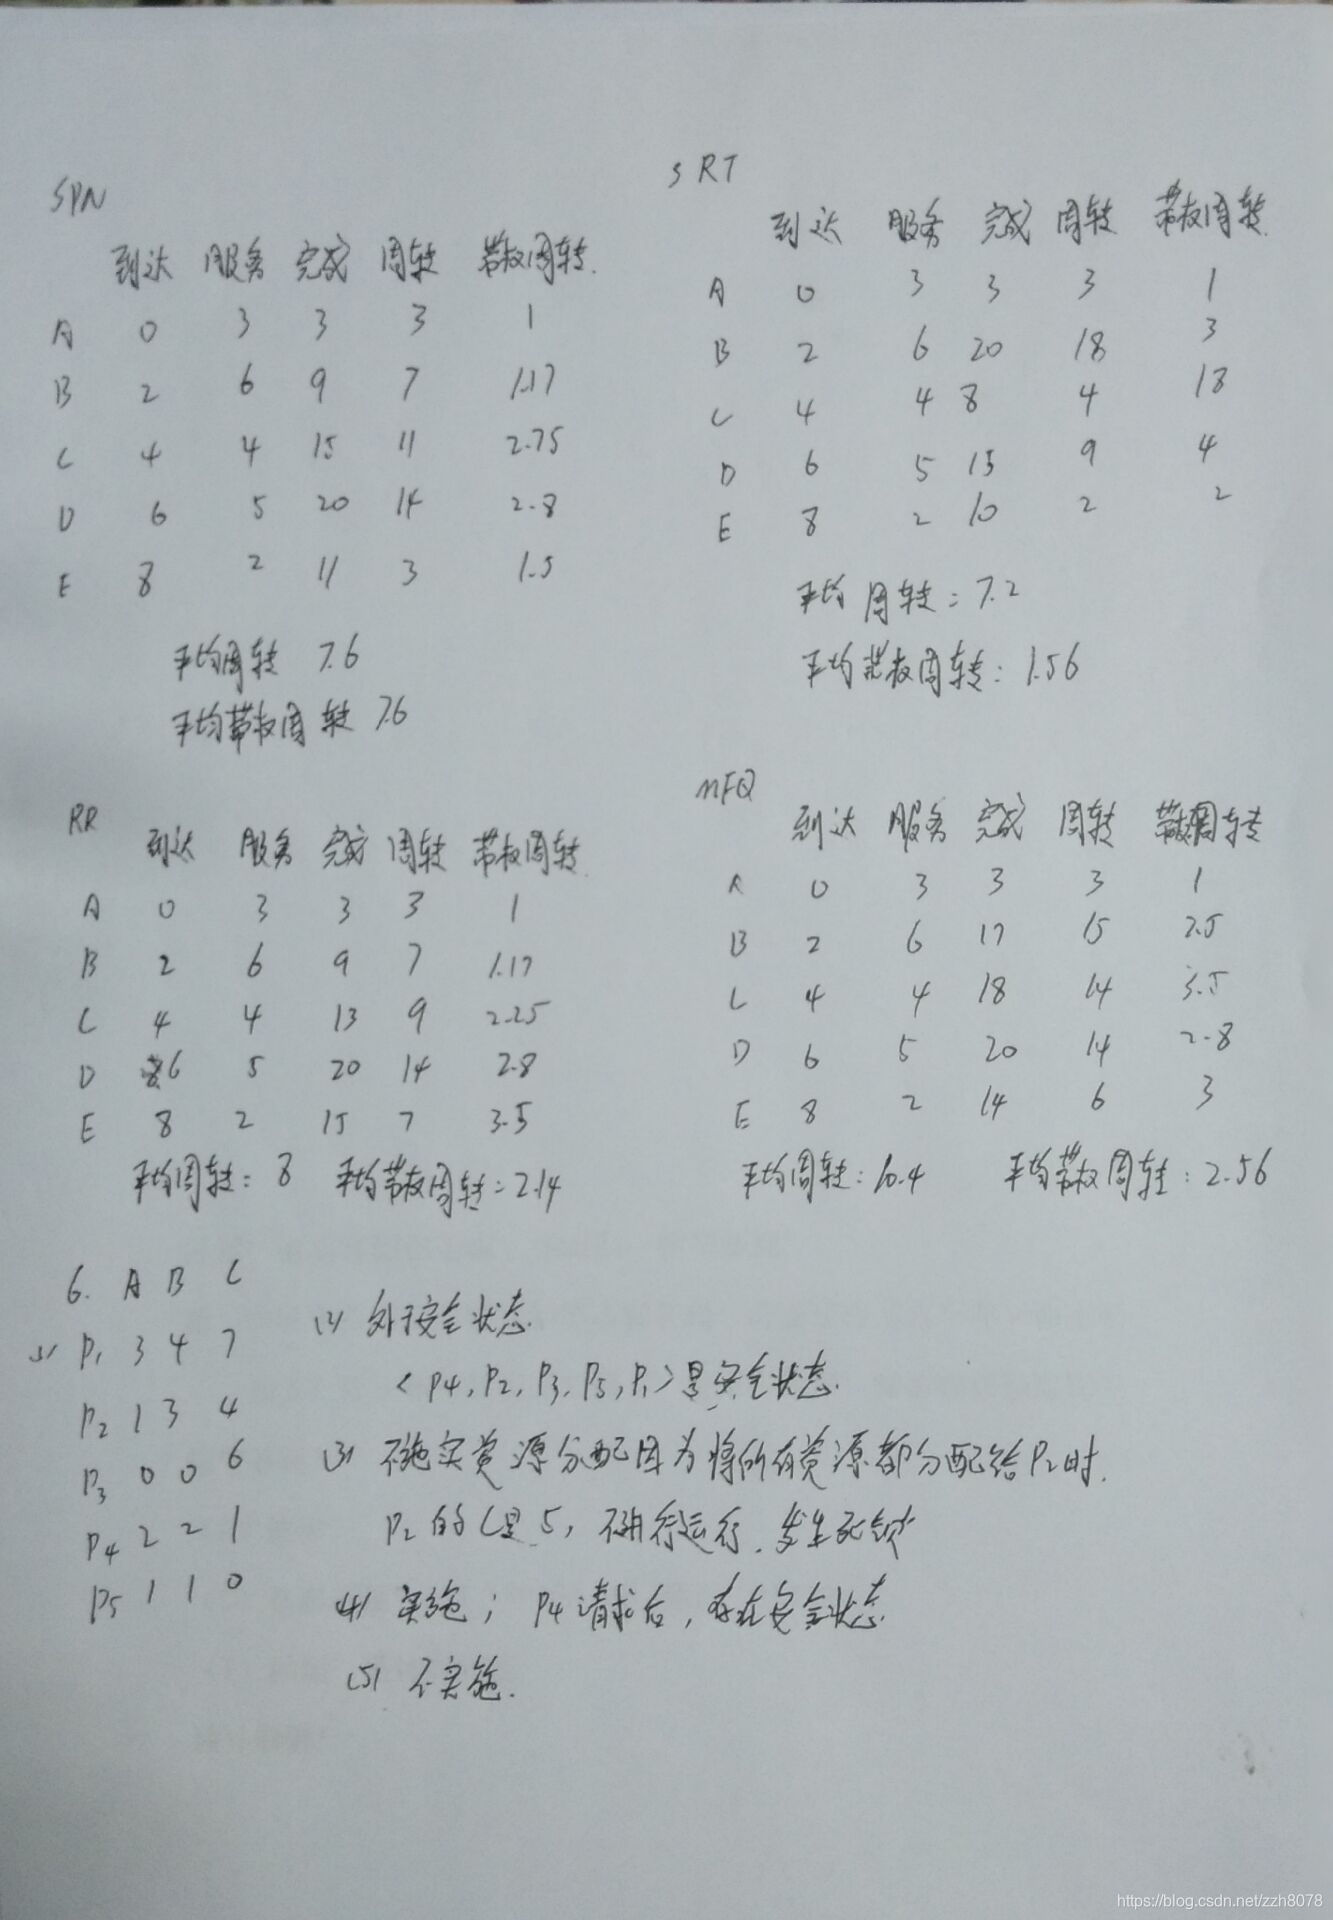 SPN
到达 服务 完成 周转 带权周转
A 0 3 3 3 1
B 2 6 9 7 1.17
C 4 4 15 11 2.75
D 6 5 20 14 2.8
E 8 2 11 3 1.5
平均周转 7.6
平均带权周转 7.6
SRT
到达 服务 完成 周转 带权周转
A 0 3 3 3 1
B 2 6 20 18 3
C 4 4 8 4 18
D 6 5 15 9 4
E 8 2 10 2 2
平均周转:7.2
平均带权周转:1.56
RR
到达 服务 完成 周转 带权周转
A 0 3 3 3 1
B 2 6 9 7 1.17
C 4 4 13 9 2.25
D 6 5 20 14 2.8
E 8 2 15 7 3.5
平均周转:8 平均带权周转:2.14
MFQ
到达 服务 完成 周转 带权周转
A 0 3 3 3 1
B 2 6 17 15 2.5
C 4 4 18 14 3.5
D 6 5 20 14 2.8
E 8 2 14 6 3
平均周转:10.4 平均带权周转:2.56
6. A B C
(1) P1 3 4 7
P2 1 3 4
P3 0 0 6
P4 2 2 1
P5 1 1 0
(2) 处于安全状态
<P4,P2,P3,P5,P1>是安全状态.
(3) 不能实资源分配因为将所有资源都分配给P2时.
P2的C是5,不进行运行.发生死锁
(4) 实施;P4请求后,存在安全状态
(5) 不实施.
https://blog.csdn.net/zzh8078